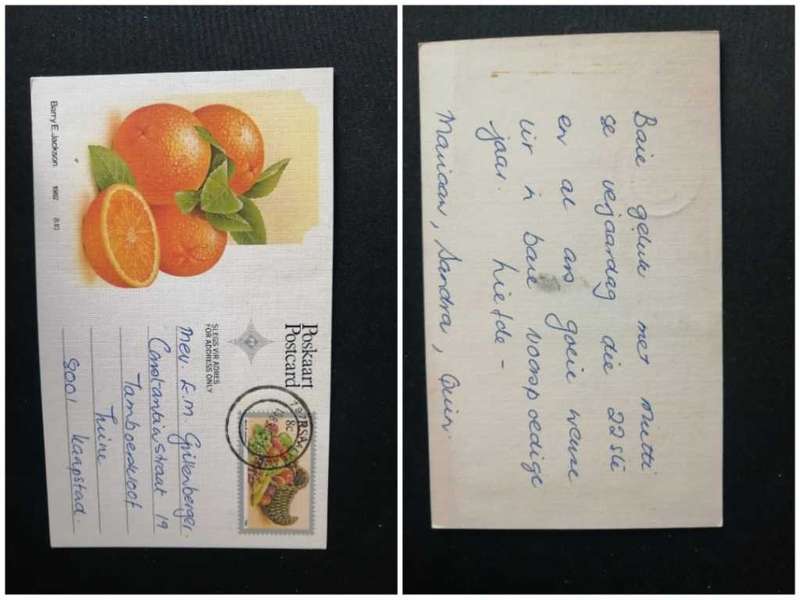 Barry E. Jackson 1982 (1.10)
Poskaart
Postcard
SLEGS VIR ADRES
FOR ADDRESS ONLY
RSA
8c
Mev. E.M.
Constantiastraat 19
Tamboerskloof
Tuine
8001 Kaapstad.
Baie geluk met Mutti
se verjaardag die 22ste
en al ons goeie wense
vir 'n baie voorspoedige
jaar. Liefde -
Mariaan, Sandra,